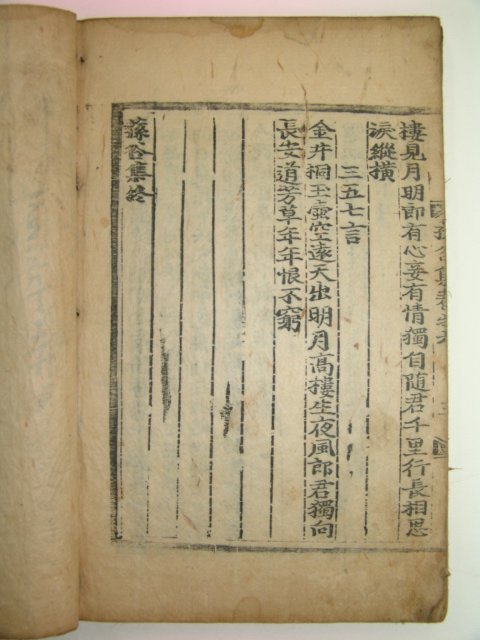 樓見月明郎有心妾有情獨自隨君千里行長相思
淚縱橫
三五七言
金井桐玉壺空遠天出明月高樓生夜風郎君獨向
長安道芳草年年恨不窮
蓀谷集終